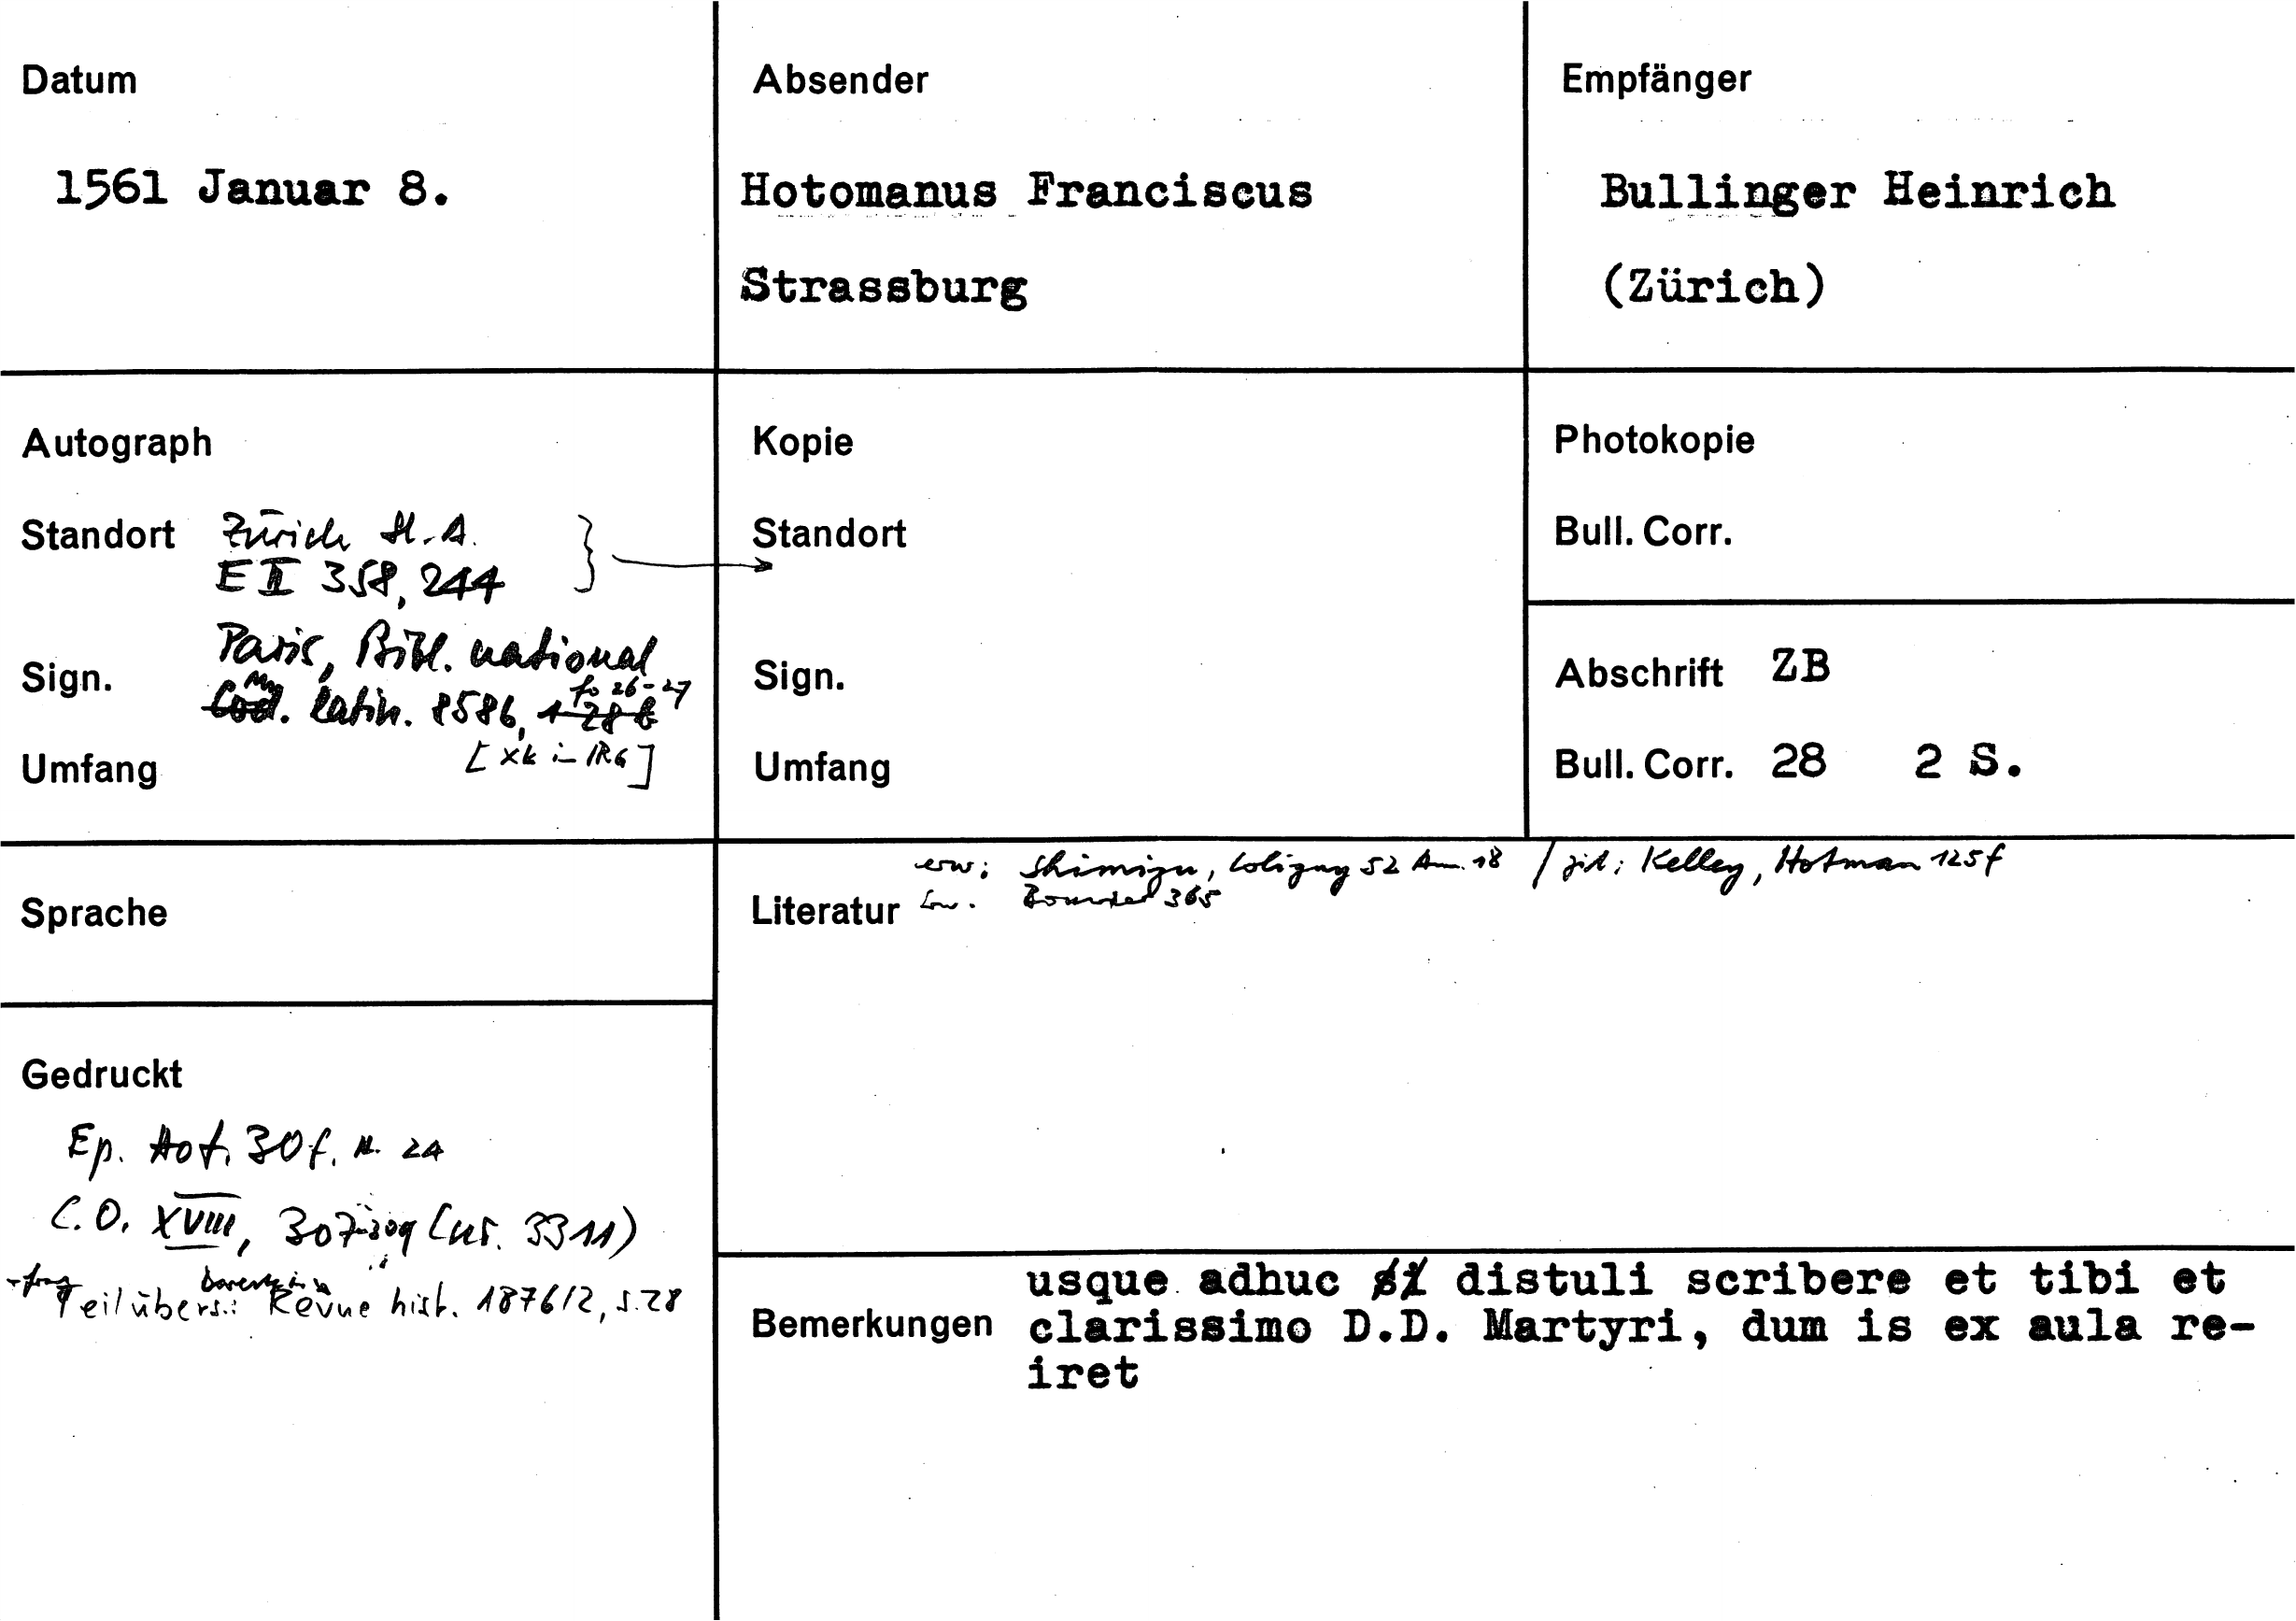 Datum
1561 Januar 8.
Absender
Hotomanus Franciscus
Strassburg
Empfänger
Bullinger Heinrich
(Zürich)
Autograph
Standort Zürich St.A.
E II 358, 244
Sign. Paris, Bibl. national
Cod. latin. 8586, fo 26-27
Umfang
Kopie
Standort
Sign.
Umfang
Photokopie
Bull. Corr.
Abschrift ZB
Bull. Corr. 28 2 S.
Sprache
erw: Shimizu, Coligny 52 Anm. 18 / zit: Kelley, Hotman 125f
Literatur 365
Gedruckt
Ep. Hot. 30f. N. 24
C.O. XVIII, 307-309 (nr. 3311)
Teilübers.: Revue hist. 1876/2, S. 28
usque adhuc distuli scribere et tibi et
Bemerkungen clarissimo D.D. Martyri, dum is ex aula re-
iret